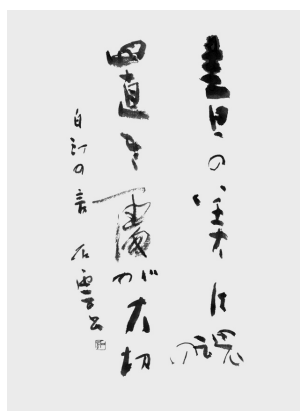 書の美は線の
置きが大切
自の言 石雲書